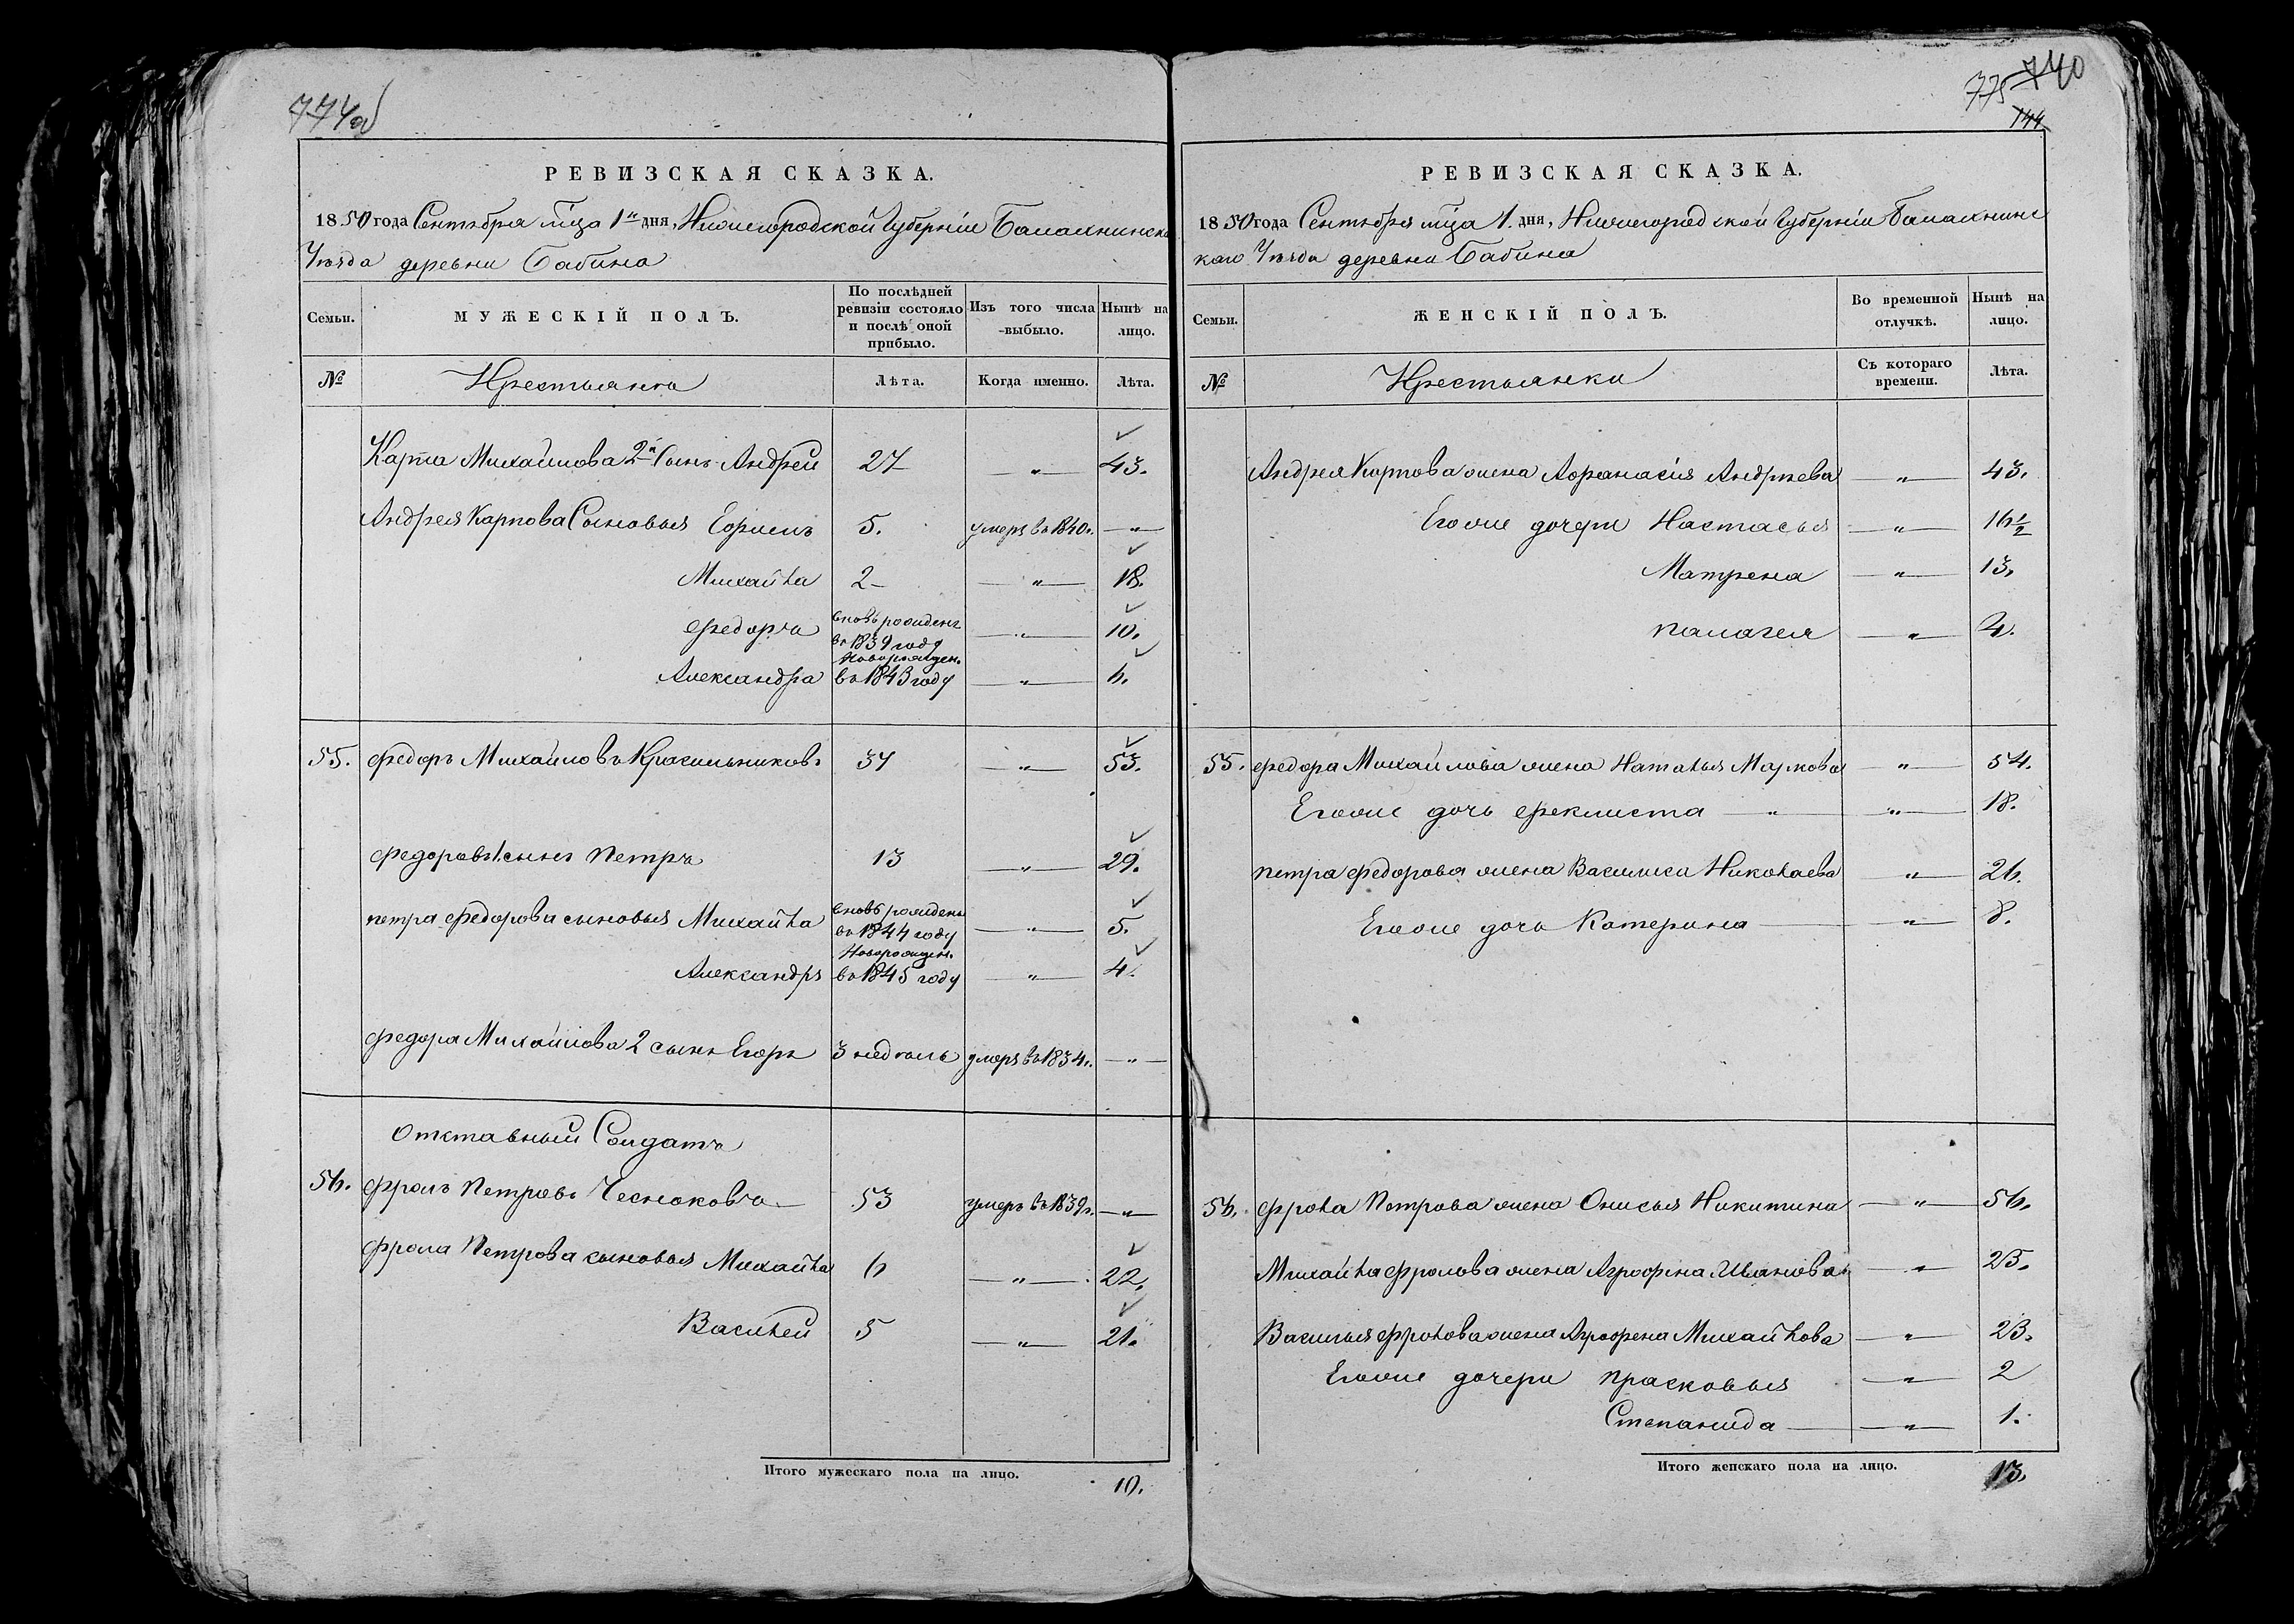 774об
РЕВИЗСКАЯ СКАЗКА.
1850 года Сентября мца 1го дня, Нижегородской Губернiи Балахнинска
Уѣзда деревни Бабина
Семьи. МУЖЕСКIЙ ПОЛЪ. По послѣдней ревизiи состояло и послѣ оной прибыло. Изъ того числа выбыло. Нынѣ на лицо.
№ Крестьянъ Лѣта. Когда именно. Лѣта.
Карпа Михайлова 2й Сынъ Андрей 27 — " — 43.
Андрея Карпова Сыновья Ефимъ 5. умеръ въ 1840г. — " —
Михайла 2 — " — 18.
Федоръ вновь рожденъ въ 1839 году — " — 10.
Александра Новорожден. въ 1843 году — " — 6.
55. Федоръ Михайловъ Красильниковъ 37 — " — 53.
Федоровъ 1. сынъ Петръ 13 — " — 29.
Петра Федорова сыновья Михайла вновь рожденъ въ 1844 году — " — 5.
Александръ Новорожден. въ 1845 году — " — 4.
Федора Михайлова 2 сынъ Егоръ 3 недѣль умеръ въ 1834г. — " —
Отставный Солдатъ
56. Фролъ Петровъ Чесноковъ 53 умеръ въ 1839г. — " —
Фрола Петрова сыновья Михайла 6 — " — 22.
Василей 5 — " — 21.
Итого мужескаго пола на лицо. 10.
775 740
144
РЕВИЗСКАЯ СКАЗКА.
1850 года Сентября мца 1. дня, Нижегородской Губернiи Балахнинс
каго Уѣзда деревни Бабина
Семьи. ЖЕНСКIЙ ПОЛЪ. Во временной отлучкѣ. Нынѣ на лицо.
№ Крестьянки Съ котораго времени. Лѣта.
Андрея Карпова жена Афанасiя Андреева — " — 43.
Его же дочери Настасья — " — 16½
Матрена — " — 13.
Палагея — " — 4.
55. Федора Михайлова жена Наталья Маркова — " — 54.
Его же дочь Феклиста — " — — " — 18.
Петра Федорова жена Василиса Николаева — " — 26.
Его же дочь Катерина — " — 8.
56. Фрола Петрова жена Онисья Никитина — " — 56.
Михайла Фролова жена Агрофена Иванова — " — 25.
Василья Фролова жена Агрофена Михайлова — " — 23.
Его же дочери Прасковья — " — 2
Степанида — " — 1.
Итого женскаго пола на лицо. 13.